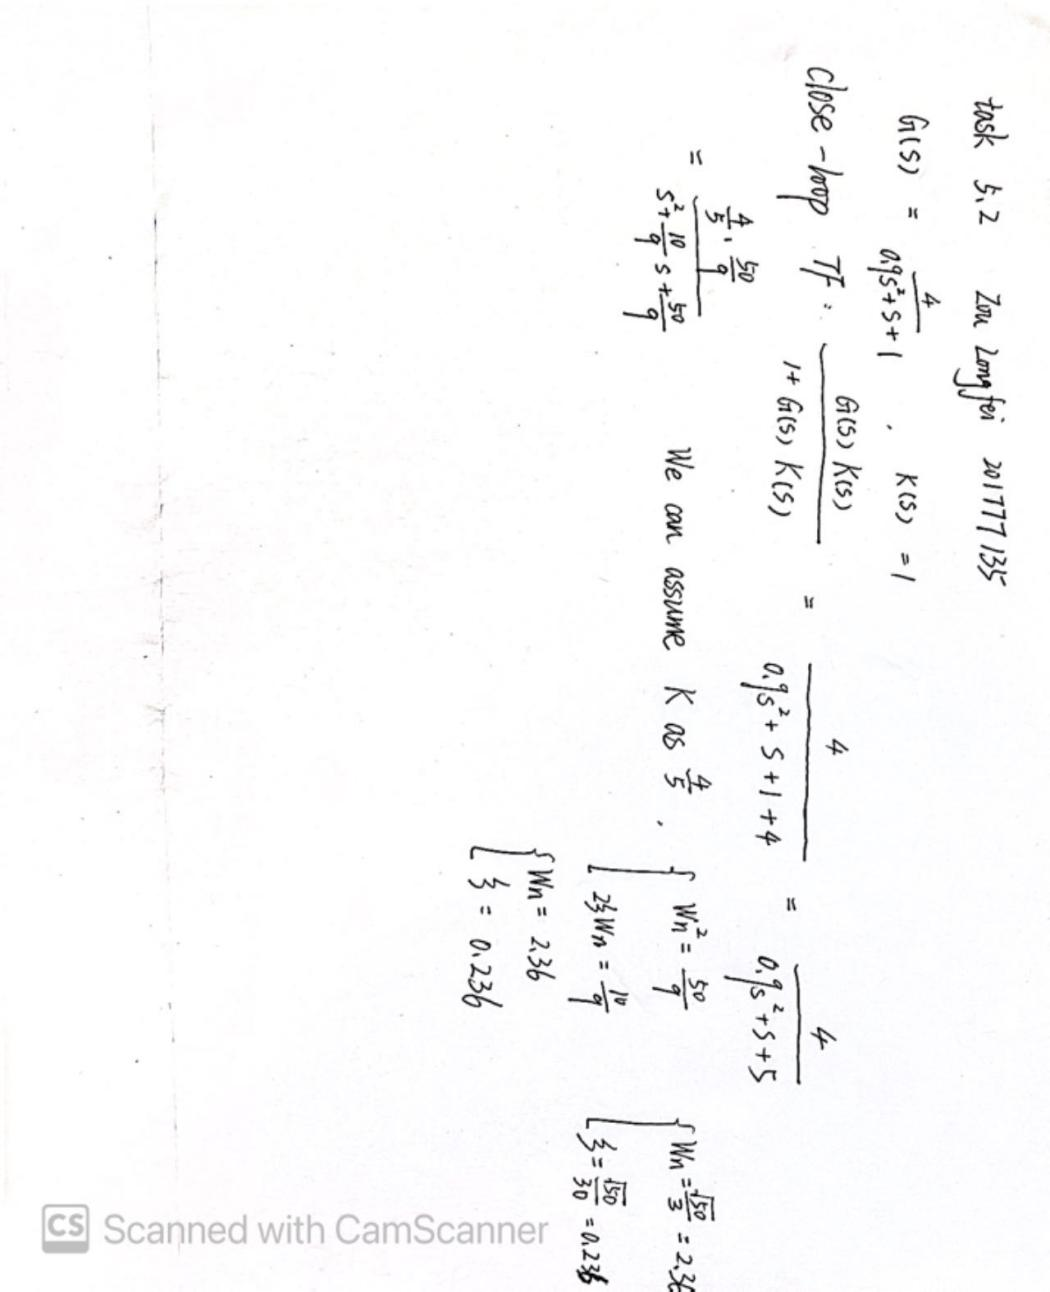 task 5.2 Zou Longfei 201777135
G(s) = 4/(0.9s²+s+1) , K(s) = 1
close-loop TF: G(s)K(s)/(1+G(s)K(s)) = 4/(0.9s²+s+1+4) = 4/(0.9s²+s+5)
= (4/5 · 50/9)/(s²+10/9 s+50/9) We can assume K as 4/5 , { Wn² = 50/9 { Wn = √50/3 = 2.36
2ξWn = 10/9 ξ = √50/30 = 0.236
{ Wn = 2.36
ξ = 0.236
CS Scanned with CamScanner